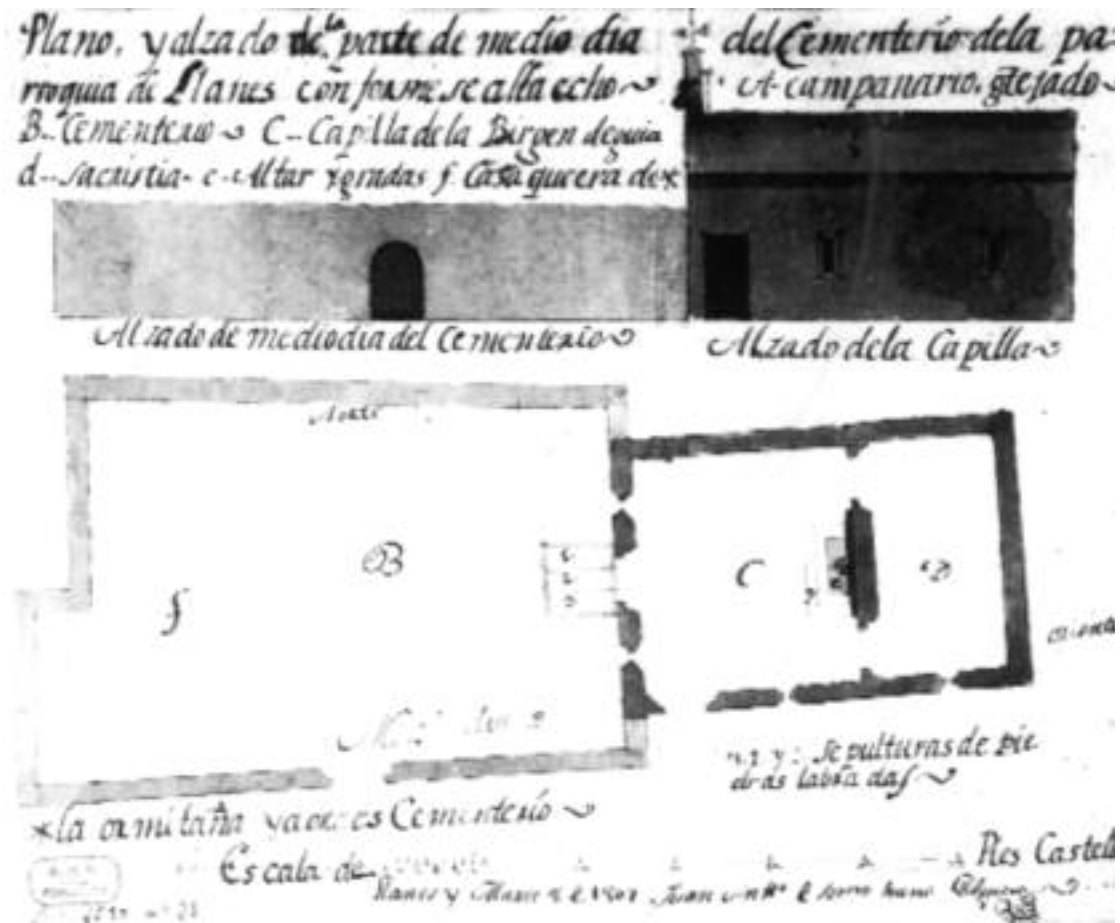 Plano, y alzado de la parte de medio dia del Cementerio dela pa=
rroquia de Llanes conforme se alla echo A. campanario, g tejado
B.. Cementerio C.. Capilla dela Birgen de guia
d.. sacristia. e. Altar y gradas f. Casa que era de *
Alzado de mediodia del Cementerio
Alzado dela Capilla
Norte
B
C
D
f
oriente
sepulturas de pie
dras labradas
* la ermitaña y aora es Cementerio
Escala de
Pies Castell
Llanes y Juan